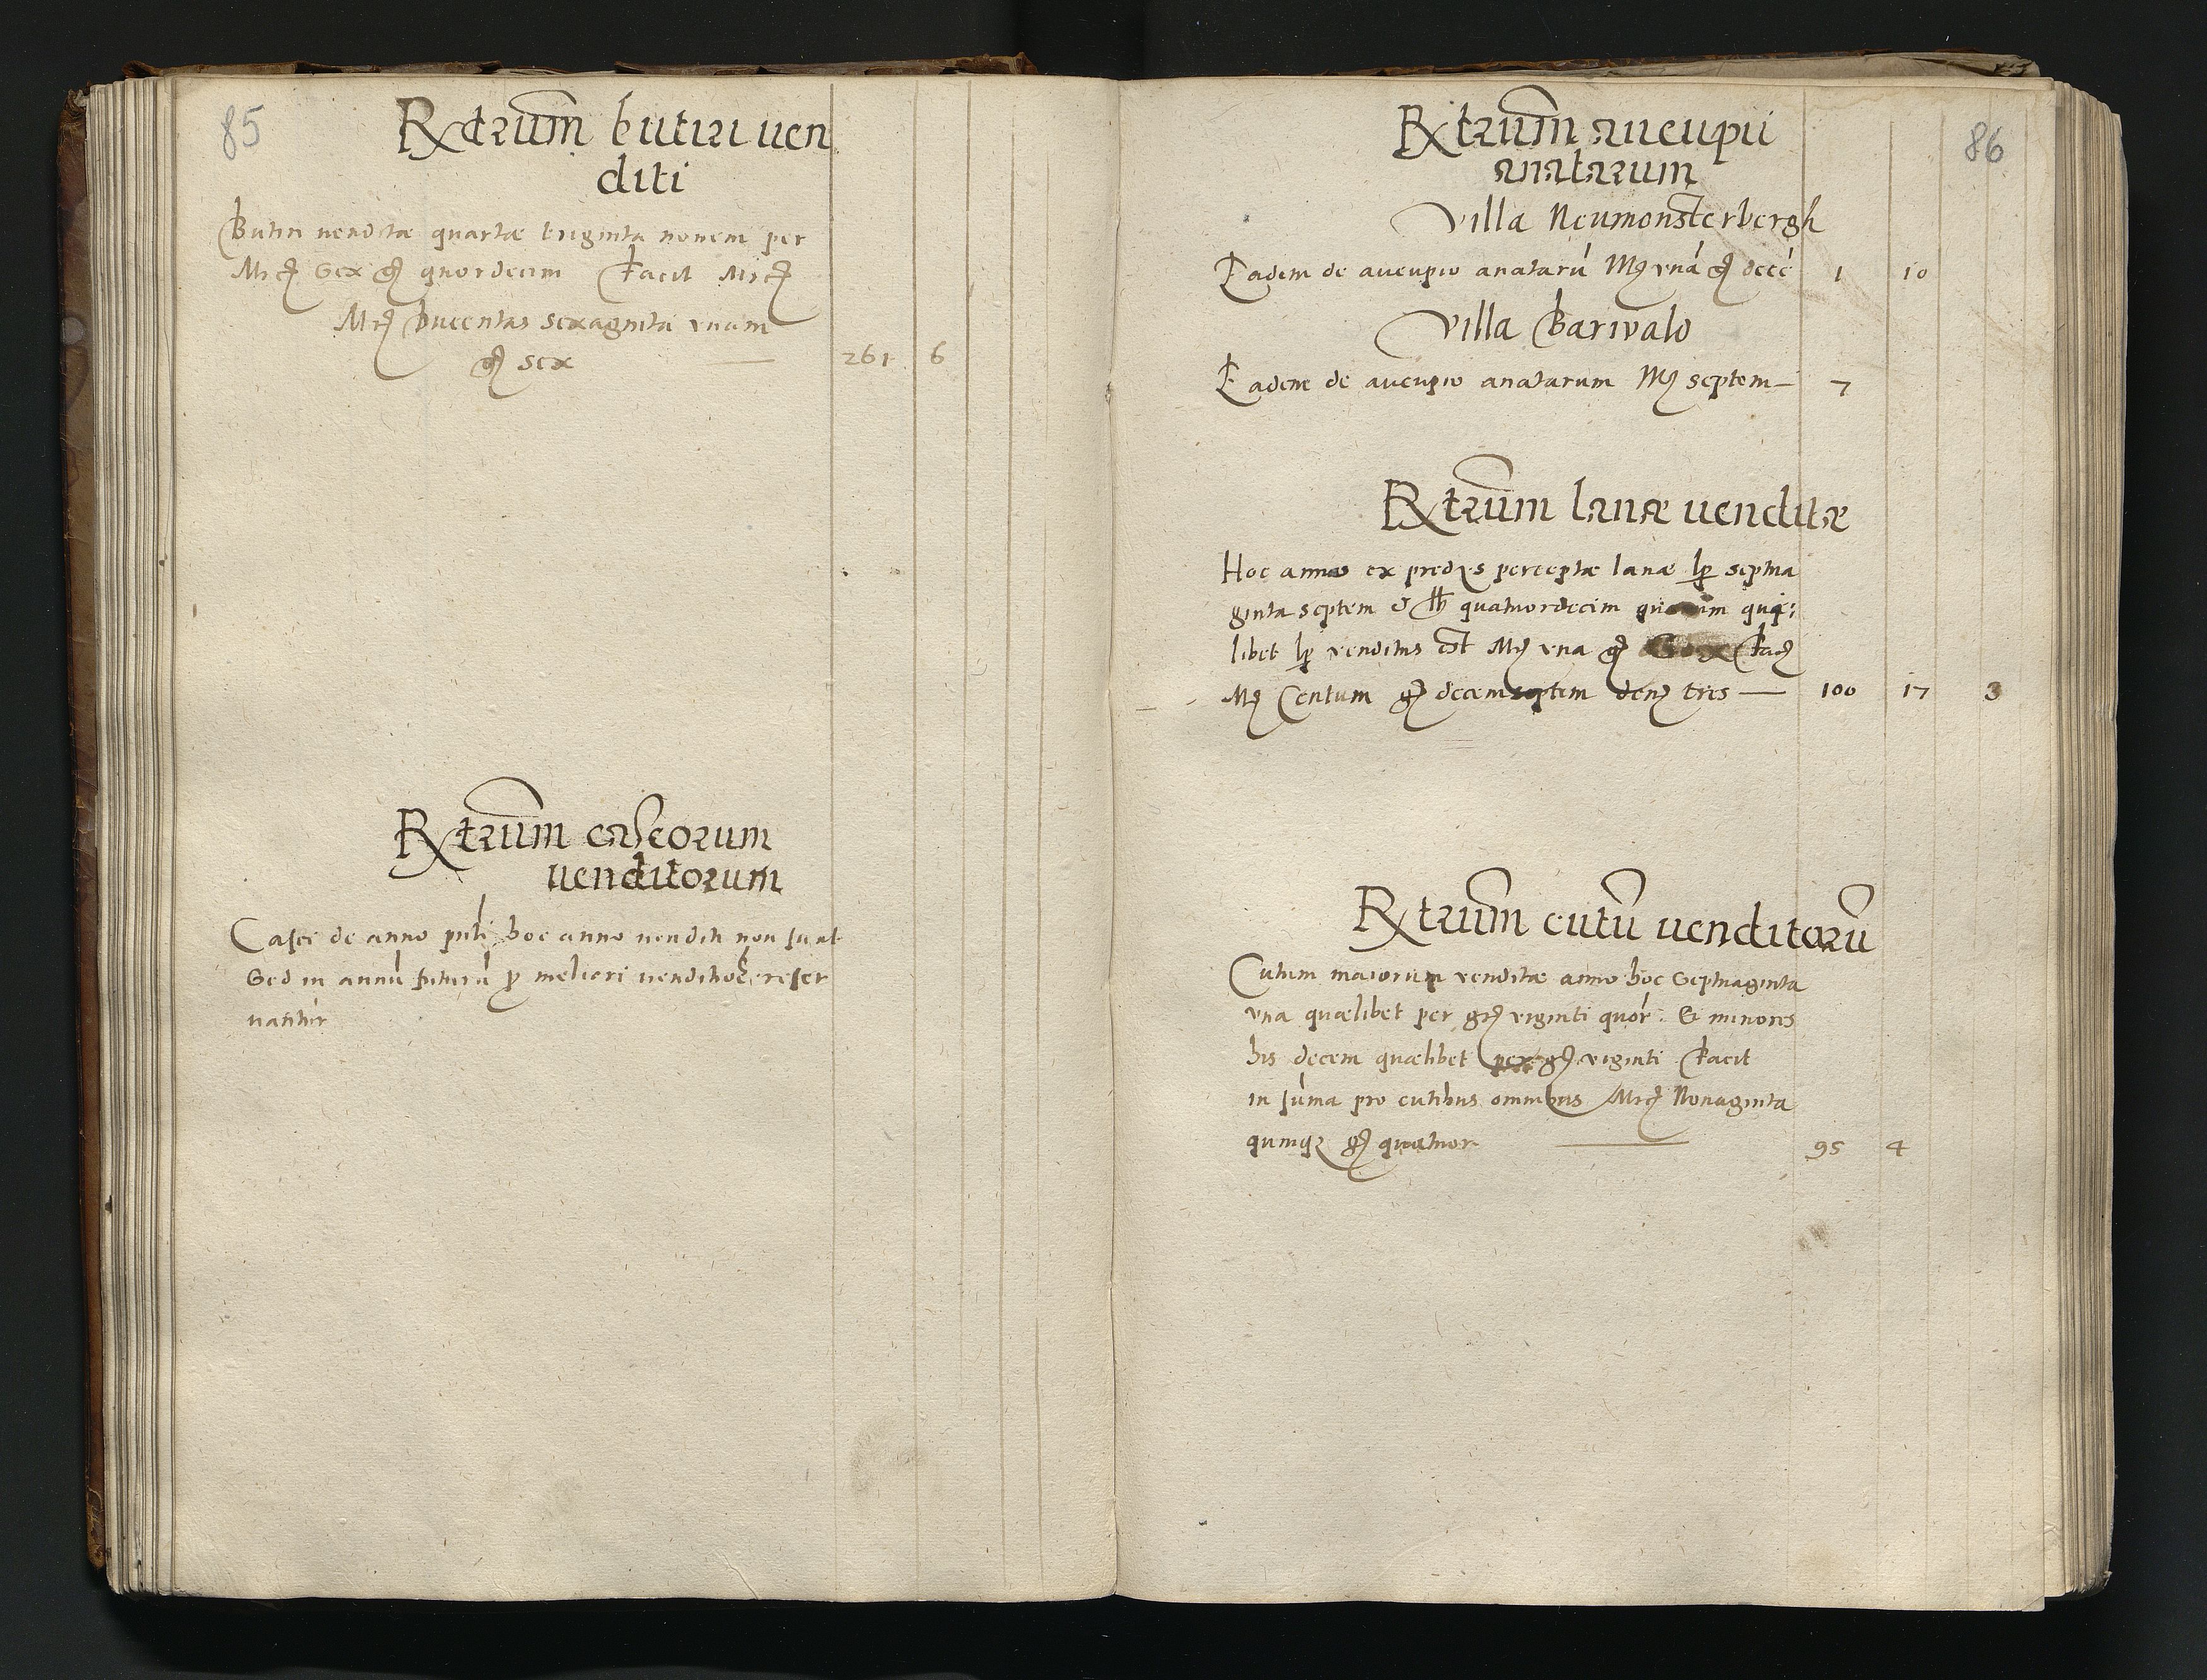 85
Rxtrum̄ butiri uen
diti
Butiri venditæ quartæ triginta novem per
Mrc̨ Sex g̨ quordecim facit Mrc̨
Mrc̨ Ducentas sexaginta vnam
g̨ sex — 261 6
Rxtrum̄ caseorum
uenditorum
Casei de anno pnti hoc anno venditi non sunt
Sed in annū futurū ꝑ meliori venditioe reser
vantur
86
Rxtrum̄ aucupii
anatarum
Villa Neumonsterbergh
Eadem de aucupio anatarū Mc̨ vnā g̨ decē 1 10
Villa Barwalo
Eadem de aucupio anatarum Mc̨ septem — 7
Rxtrum̄ lanæ uenditæ
Hoc anno ex predijs perceptæ lanæ lp septua
ginta septem & lb quatuordecim quorum qui:
libet lp venditus est Mc̨ vna g̨ Sex fac̨
Mc̨ Centum g̨ decemseptem den̨ tres — 100 17 3
Rxtrum̄ cutiū uenditorū
Cutium maiorum venditæ anno hoc Septuaginta
vna quælibet per gr̨ viginti quor. & minores
his decem quælibet per g̨ viginti facit
in sum̄a pro cutibus omnibus Mrc̨ Nonaginta
quinqꝫ g̨ quatuor — 95 4